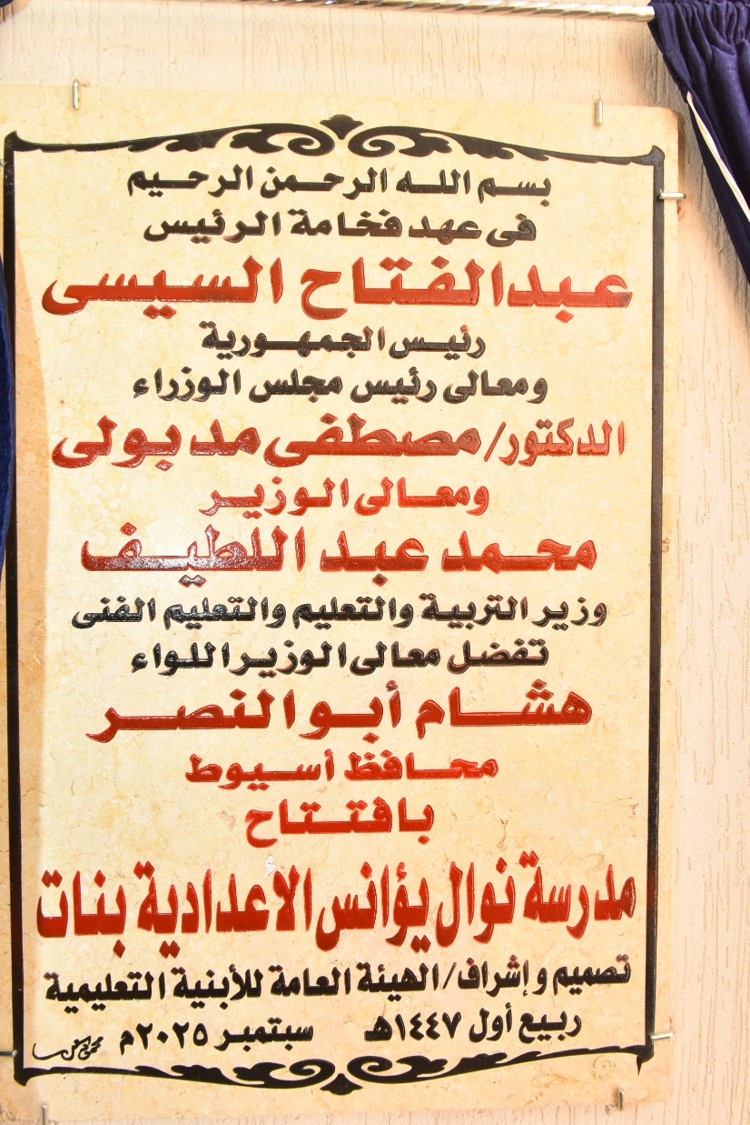 بسم الله الرحمن الرحيم
فى عهد فخامة الرئيس
عبدالفتاح السيسى
رئيس الجمهورية
ومعالى رئيس مجلس الوزراء
الدكتور/مصطفى مدبولى
ومعالى الوزير
محمد عبد اللطيف
وزير التربية والتعليم والتعليم الفنى
تفضل معالى الوزير اللواء
هشام أبو النصر
محافظ أسيوط
بافتتاح
مدرسة نوال يؤانس الاعدادية بنات
تصميم و إشراف/الهيئة العامة للأبنية التعليمية
ربيع أول ١٤٤٧هـ سبتمبر ٢٠٢٥م